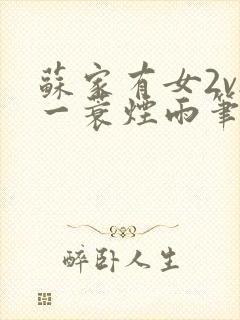 蘇家有女2v
一蓑煙雨筆
醉卧人生